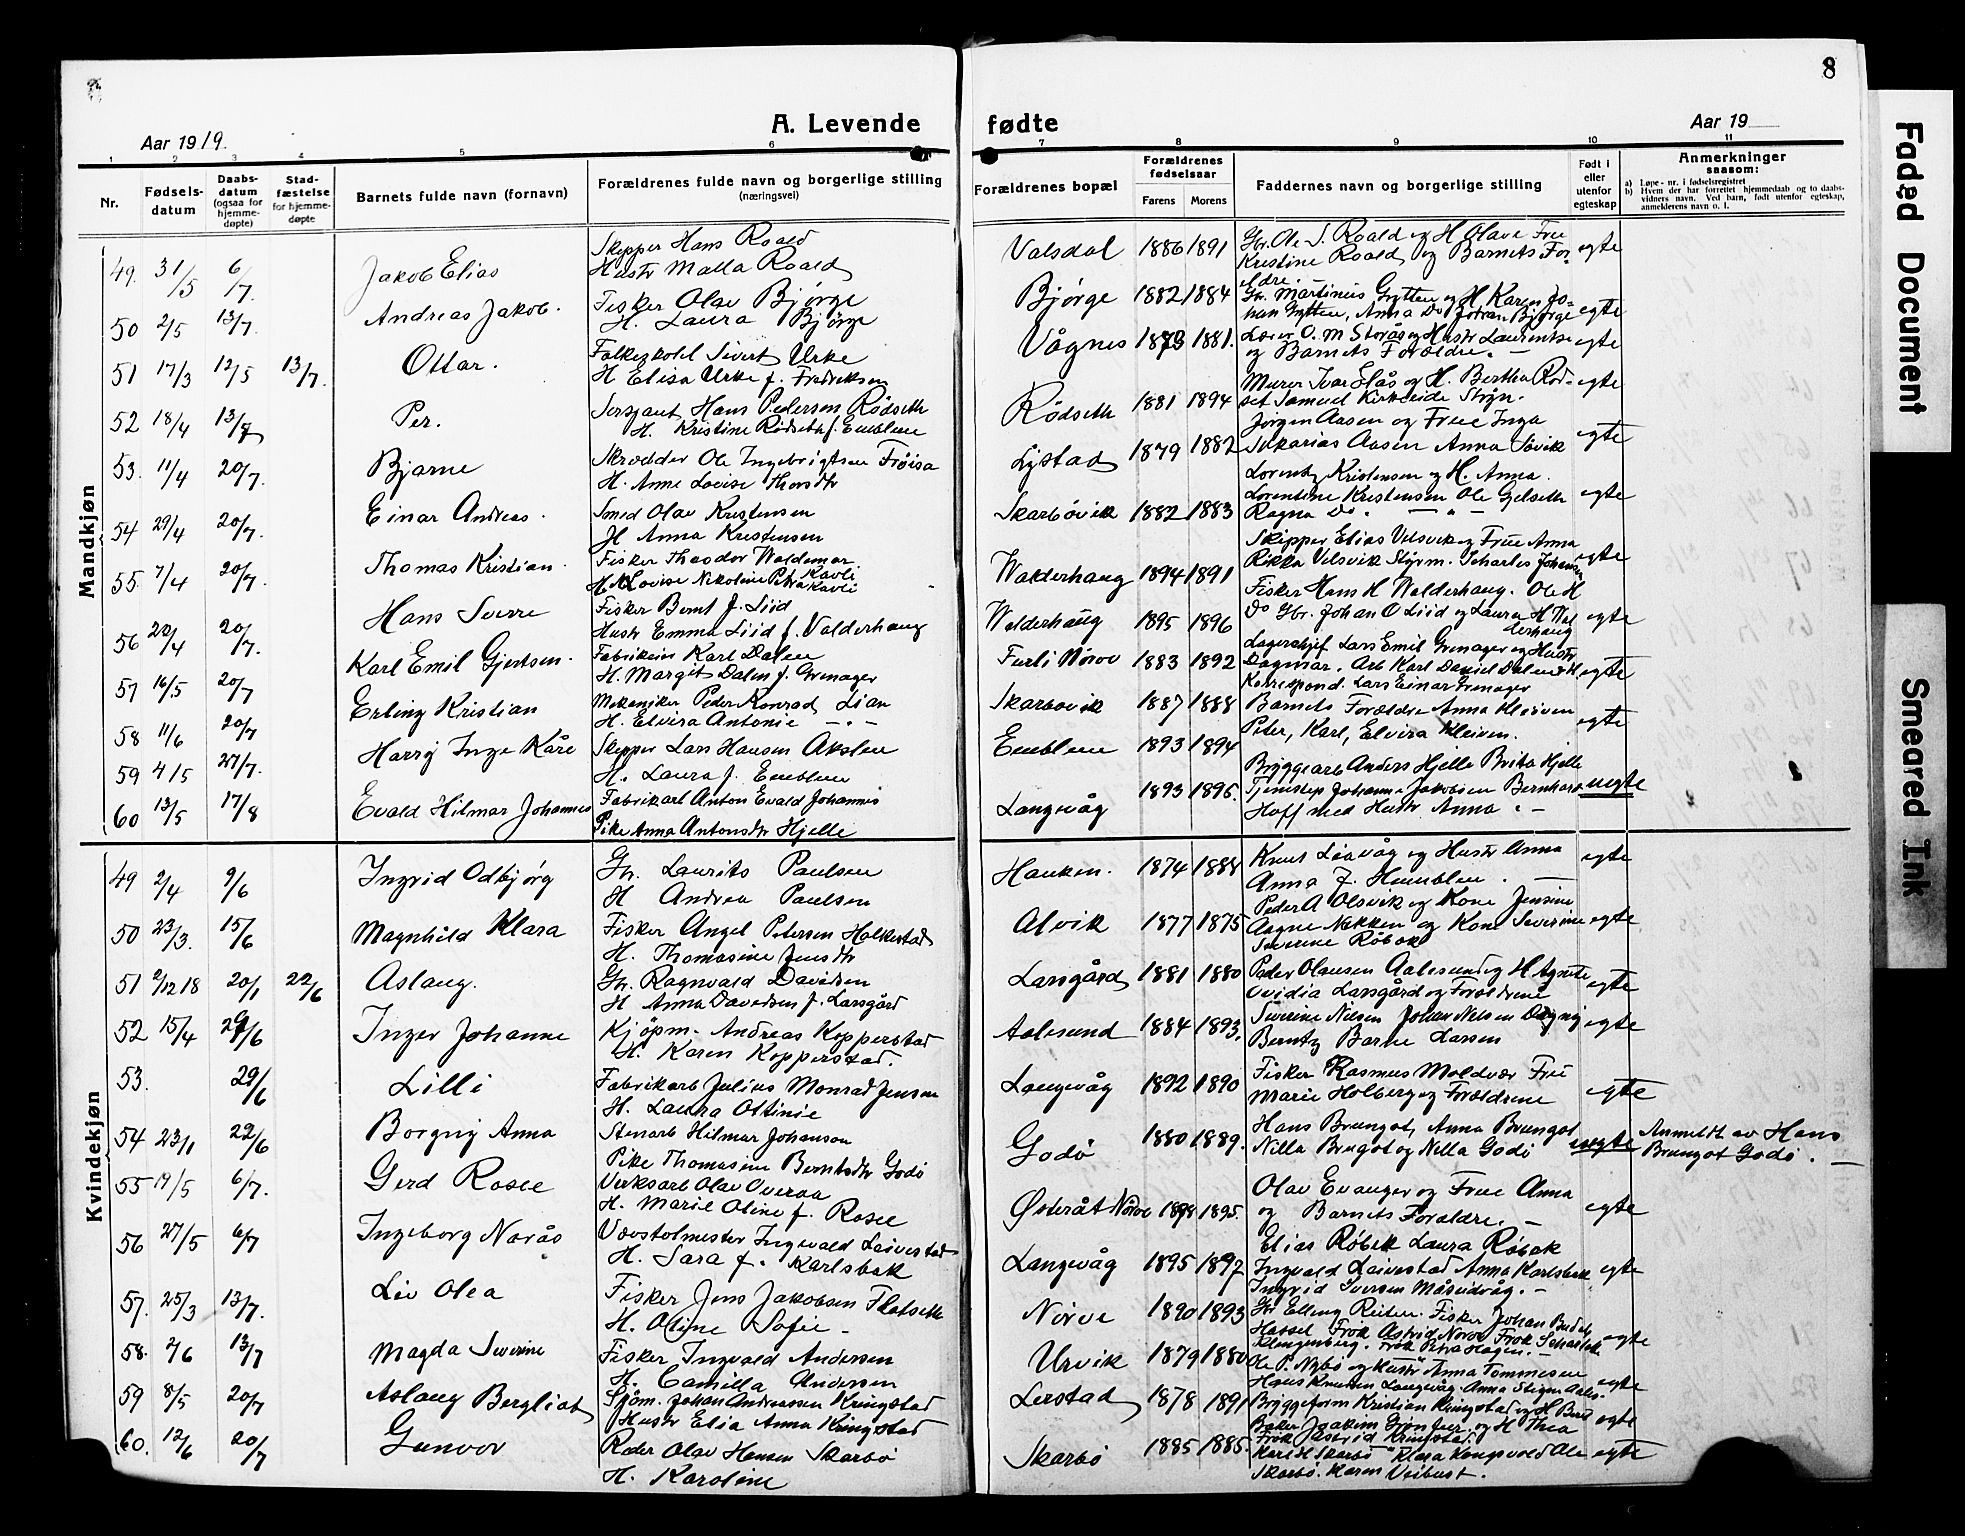 8
A. Levende fødte
Aar 1919.
Aar 19
1 2 3 4 5 6 7 8 9 10 11
Nr.
Fødsels-datum
Daabs-datum (ogsaa for hjemme-døpte)
Stad-fæstelse for hjemme-døpte
Barnets fulde navn (fornavn)
Forældrenes fulde navn og borgerlige stilling (næringsvei)
Forældrenes bopæl
Forældrenes fødselsaar
Farens Morens
Faddernes navn og borgerlige stilling
Født i eller utenfor egteskap
Anmerkninger saasom:
a) Løpe-nr. i fødselsregistret
b) Hvem der har forrettet hjemmedaab og to daabs-vidners navn. Ved barn, født utenfor egteskap, anmelderens navn o. l.
Mandkjøn
49. 31/5 6/7. Jakob Elias Skipper Hans Roald Valsdal 1886 1891 Gbr. Ole S. Roald og H Olave Frue egte
Hustr Malla Roald Kristine Roald og Barnets For-
ældre
50 2/5 13/7. Andreas Jakob. Fisker Olav Bjørge Bjørge 1882 1884 Gbr. Martinus Grytten og H. Karen Jo- egte
H. Laura Bjørge Grytten, Anna Do Bjørge
51 17/3 12/5 13/7. Ottar. Sivert Urke Vågnes 1881. O. M Storås og Hustr egte
H Elisa Urke f. Fredriksen og Barnets Forældre. —
52 18/4 13/7 Per. Sersjant Hans Pedersen Rødseth Rødseth 1881 1894 Murer Ivar Slås og H. Bertha Rød- egte
H. Kristine Rødseth f. Emblem set Samuel Kirkeeide Stryn.
53. 11/4 20/7. Bjarne Skrædder Ole Ingebrigtsen Frøisa Lystad 1879 1882 Jørgen Aasen og Frue Inga egte
H. Anne Lovise Thorsdtr Sakarias Aasen Anna Søvik
54 29/4 20/7. Einar Andreas. Smed Olav Kristensen Skarbøvik 1882 1883 Lorentz Kristensen og H. Anna. egte
H Anna Kristensen Lorentine Kristensen Ole Gjelseth
Ragna Do. — " —
55. 7/4 20/7. Thomas Kristian. Fisker Theodor Waldemar Kavli Walderhaug 1894 1891 Skipper Elias Vilsvik og Frue Anna egte
H. Lovise Nikoline Petra Kavli Rikka Vilsvik Styrm. Scharles Johansen
56 20/4 20/7. Hans Sverre Fisker Bernt J. Liid Walderhaug 1895 1896 Fisker Hans H Walderhaug. Ole H egte
Hustr Emma Liid f. Valderhaug Do Gbr. Johan O Liid og Laura H Wal
derhaug
57 16/5 20/7 Karl Emil Gjertsen. Karl Dalen Furli Nørve 1883 1892 Lagerskjef Lars Emil Grenager og Hustr egte
H. Margit Dalen f. Grenager Dagmar. Arb Karl Daniel Dalen H
Korrespond. Lars Einar Grenager
58 11/6 20/7 Erling Kristian Mekaniker Peder Konrad Lian Skarbøvik 1887 1888 Barnets Forældre Anna Kleiven egte
H. Elvira Antonie — " — Peter, Karl, Elvira Kleiven.
59 4/5 27/7. Harry Inge Kåre Skipper Lars Hansen Akslen Emblem 1893 1894
H. Laura f. Emblem
60 13/5 17/8 Evald Hilmar Johannes Fabrikarb Anton Evald Johannes Langevåg 1893 1896. Bryggearb Anders Hjelle Brita Hjelle uegte
Pike Anna Antonsdtr Hjelle Johanna Jakobsen Bernhard
Hoff med Hustr Anna. —
Kvindekjøn
49 2/4 9/6 Ingrid Odbjørg Gbr. Laurits Paulsen Hauken. 1874 1888 Knut Liavåg og Hustr Anna egte
H Andrea Paulsen Anna J. Humblen. —
50 23/3. 15/6 Magnhild Klara Fisker Angel Petersen Holkestad Alvik 1877 1875 Peder A Olsvik og Kone Jensine egte
H. Thomasine Jensdtr Aagne Nekken og Kone Severine
Severine Røbek
51 2/12 18 20/1 22/6 Aslaug. Gbr. Ragnvald Davidsen Larsgård 1881 1880 Peder Olausen Aalesund og H Agnete egte
H Anna Davidsen f. Larsgård Ovidia Larsgård og Forældrene
52 15/4 29/6 Inger Johanne Kjøpm. Andreas Kopperstad Aalesund 1884 1893. Severine Nilsen Johan Nilsen Dagny egte
H. Karen Kopperstad. Berntz Barke Larsen
53. 29/6 Lilli Fabrikarb Julius Monrad Jensen Langevåg 1892 1890 Fisker Rasmus Moldvær Frue egte
H. Laura Ottinie Marie Holberg og Forældrene
54 23/1 22/6 Borgny Anna Stenarb Hilmar Johanson Godø 1880 1889. Hans Brungot, Anna Brungot uegte Anmeldt av Hans
Pike Thomasine Berntsdtr Godø Nilla Brungot og Nilla Godø Brungot Godø. —
55 19/5 6/7. Gerd Rosee Verksarb Olav Overaa Østeråt Nørve 1898 1895. Olav Evanger og Frue Anna egte
H. Marie Oline f. Rosee og Barnets Forældre. —
56 27/5 6/7 Ingeborg Norås Ingvald Leivestad Langevåg 1895 1897 Elias Røbek Laura Røbek egte
H. Sara f. Karlsbak Ingvald Leivestad Anna Karlsbak
Ingrid Iversen Måseidvåg. —
57. 25/3 13/7. Liv Olea Fisker Jens Jakobsen Flatseth Nørve 1890 1893 Gbr Elling Reiten. Fisker Johan egte
H. Oline Sofie — Hassel Frøk Astrid Nørve Frøk
Klingenberg. Frøk Petra Hagen. —
58. 2/6 13/7 Magda Severine Fisker Ingvald Andersen Urvik 1879 1880 Ole P. Nybø og Hustr Anna Tommesen egte
H. Camilla Andersen Hans Knutsen Langevåg. Anna Stigen Aales.
59 8/5 20/7 Aslaug Bergliot Sjøm. Johan Andreassen Kringstad Lerstad 1878 1891 Bryggeform Kristian Kringstad og H Berte egte
Hustr Elia Anna Kringstad Baker Joakim og H Thea
Frøk Jastrid Kringstad.
60. 12/6 20/7 Gunvor Reder Olav Hansen Skarbø Skarbø 1885 1885. Karl H Skarbø Klara Kongsvold Ole egte
H. Karoline Skarbø. Karen Veibust.
Faded Document
Smeared Ink